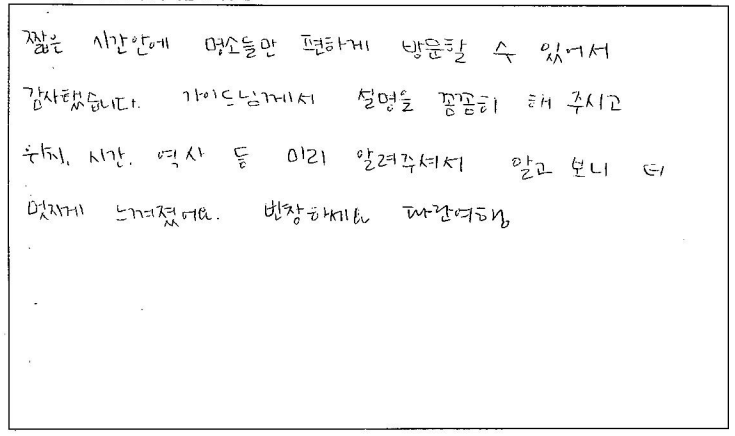 짧은 시간안에 명소들만 편하게 방문할 수 있어서
감사했습니다. 가이드님께서 설명을 꼼꼼히 해 주시고
위치, 시간, 역사 등 미리 알려주셔서 알고 보니 더
멋지게 느껴졌어요. 번창하세요 파란여행